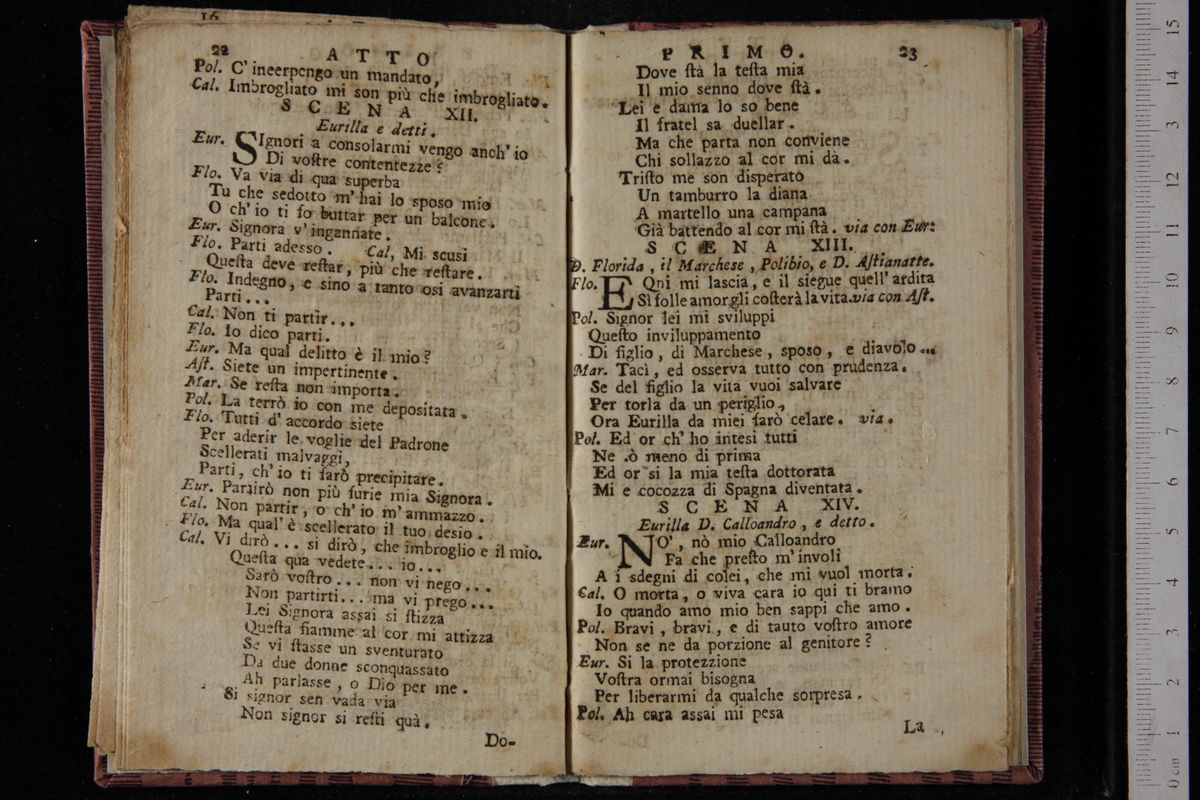 22
ATTO
Pol. C' incerpengo un mandato,
Cal. Imbrogliato mi son più che imbrogliato.
SCENA XII.
Eurilla e detti.
Eur. SIgnori a consolarmi vengo anch' io
Di voſtre contentezze?
Flo. Va via di qua superba
Tu che sedotto m' hai lo sposo mio
O ch' io ti fo buttar per un balcone.
Eur. Signora v' ingannate.
Flo. Parti adesso. Cal, Mi scusi
Queſta deve reſtar, più che reſtare.
Flo. Indegno, e sino a tanto osi avanzarti
Parti...
Cal. Non ti partir...
Flo. Io dico parti.
Eur. Ma qual delitto è il mio?
Aſt. Siete un impertinente.
Mar. Se reſta non importa.
Pol. La terrò io con me depositata.
Flo. Tutti d' accordo siete
Per aderir le voglie del Padrone
Scellerati malvaggi,
Parti, ch' io ti farò precipitare.
Eur. Partirò non più furie mia Signora.
Cal. Non partir, o ch' io m' ammazzo.
Flo. Ma qual' è scellerato il tuo desio.
Cal. Vi dirò... si dirò, che imbroglio e il mio.
Queſta qua vedete... io...
Sarò voſtro... non vi nego...
Non partirti... ma vi prego...
Lei Signora assai si ſtizza
Queſta fiamme al cor mi attizza
Se vi ſtasse un sventurato
Da due donne sconquassato
Ah parlasse, o Dio per me.
Si signor sen vada via
Non signor si reſti quà.
Do-
PRIMO.
23
Dove ſtà la teſta mia
Il mio senno dove ſtà.
Lei e dama lo so bene
Il fratel sa duellar.
Ma che parta non conviene
Chi sollazzo al cor mi dà.
Triſto me son disperato
Un tamburro la diana
A martello una campana
Già battendo al cor mi ſtà. via con Eur:
SCENA XIII.
D. Florida, il Marchese, Polibio, e D. Aſtianatte.
Flo. EQni mi lascia, e il siegue quell' ardita
Sì folle amor gli coſterà la vita. via con Aſt.
Pol. Signor lei mi sviluppi
Queſto inviluppamento
Di figlio, di Marchese, sposo, e diavolo...
Mar. Tacì, ed osserva tutto con prudenza.
Se del figlio la vita vuoi salvare
Per torla da un periglio,
Ora Eurilla da miei farò celare. via.
Pol. Ed or ch' ho intesi tutti
Ne .ò meno di prima
Ed or si la mia teſta dottorata
Mi e cocozza di Spagna diventata.
SCENA XIV.
Eurilla D. Calloandro, e detto.
Eur. NO', nò mio Calloandro
Fa che preſto m' involi
A i sdegni di colei, che mi vuol morta.
Cal. O morta, o viva cara io qui ti bramo
Io quando amo mio ben sappi che amo.
Pol. Bravi, bravi, e di tauto voſtro amore
Non se ne da porzione al genitore?
Eur. Si la protezzione
Voſtra ormai bisogna
Per liberarmi da qualche sorpresa.
Pol. Ah cara assai mi pesa
La
15
14
13
12
11
10
9
8
7
6
5
4
3
2
1
0 cm